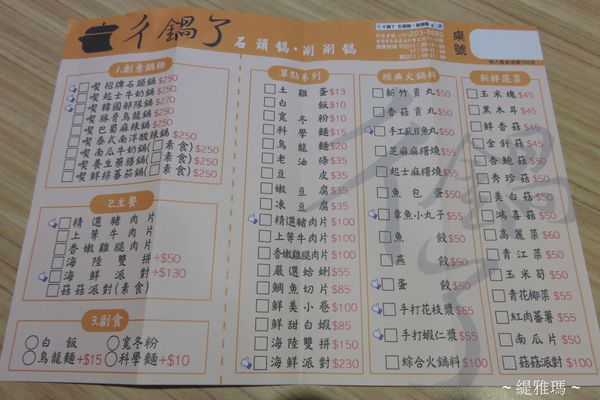 彳鍋了
石頭鍋・涮涮鍋
203-8680
桌號
1.創意鍋物
喫招牌石頭鍋$250
喫起士牛奶鍋$250
喫韓國部隊鍋$270
喫豚骨烏龍鍋$250
喫巴蜀麻辣鍋$250
喫泰式南洋酸辣鍋$250
喫南瓜牛奶鍋(素食)$250
喫養生藥膳鍋(素食)$250
喫鮮採蕃茄鍋(素食)$250
2.主餐
精選豬肉片
上等牛肉片
香嫩雞腿肉片
海陸雙拼+$50
海鮮派對+$130
菇菇派對(素食)
3.副食
白飯
寬冬粉
烏龍麵+$15
科學麵+$10
單點系列
土雞蛋$13
白飯$10
寬冬粉$10
科學麵$15
烏龍麵$20
老油條$35
豆皮$35
嫩豆腐$35
凍豆腐$35
精選豬肉片$100
上等牛肉片$100
香嫩雞腿肉片$100
嚴選蛤蜊$55
鯛魚切片$85
鮮美小卷$100
鮮甜白蝦$85
海陸雙拼$150
海鮮派對$230
經典火鍋料
新竹貢丸$50
香菇貢丸$50
手工虱目魚丸$50
芝麻麻糬燒$55
起士麻糬燒$55
魚包蛋$50
章魚小丸子$55
魚餃$50
燕餃$50
蛋餃$50
手打花枝漿$65
手打蝦仁漿$55
綜合火鍋料$100
新鮮蔬菜
玉米塊$45
黑木耳$45
鮮香菇$45
金針菇$45
杏鮑菇$50
秀珍菇$50
美白菇$50
鴻喜菇$50
高麗菜$60
青江菜$50
玉米筍$50
青花椰菜$55
紅肉蕃薯$55
南瓜片$50
菇菇派對$100
~ 緹雅瑪 ~